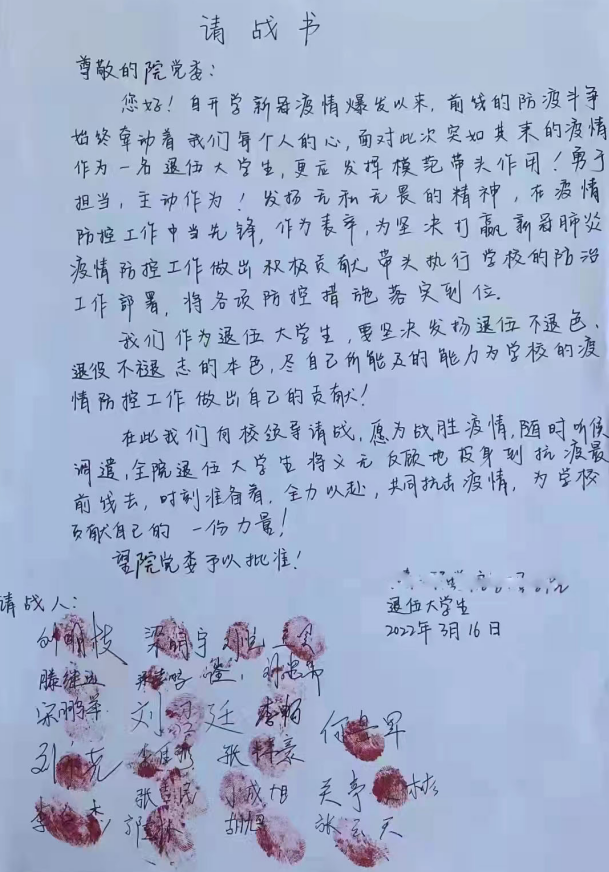 请战书
尊敬的院党委：
您好！自开学新冠疫情爆发以来，前线的防疫斗争
始终牵动着我们每个人的心，面对此次突如其来的疫情
作为一名退伍大学生，更应发挥模范带头作用！勇于
担当，主动作为！发扬无私无畏的精神，在疫情
防控工作中当先锋，作表率，为坚决打赢新冠肺炎
疫情防控工作做出积极贡献带头执行学校的防治
工作部署，将各项防控措施落实到位.
我们作为退伍大学生，要坚决发扬退伍不退色、
退役不褪志的本色，尽自己所能及的能力为学校的疫
情防控工作做出自己的贡献！
在此我们向校领导请战，愿为战胜疫情，随时听候
调遣，全院退伍大学生将义无反顾地投身到抗疫最
前线去，时刻准备着，全力以赴，共同抗击疫情，为学校
贡献自己的一份力量！
望院党委予以批准！
退伍大学生
2022年3月16日
请战人：
宋鹏华
刘 廷 李畅
张吉民
胡旭